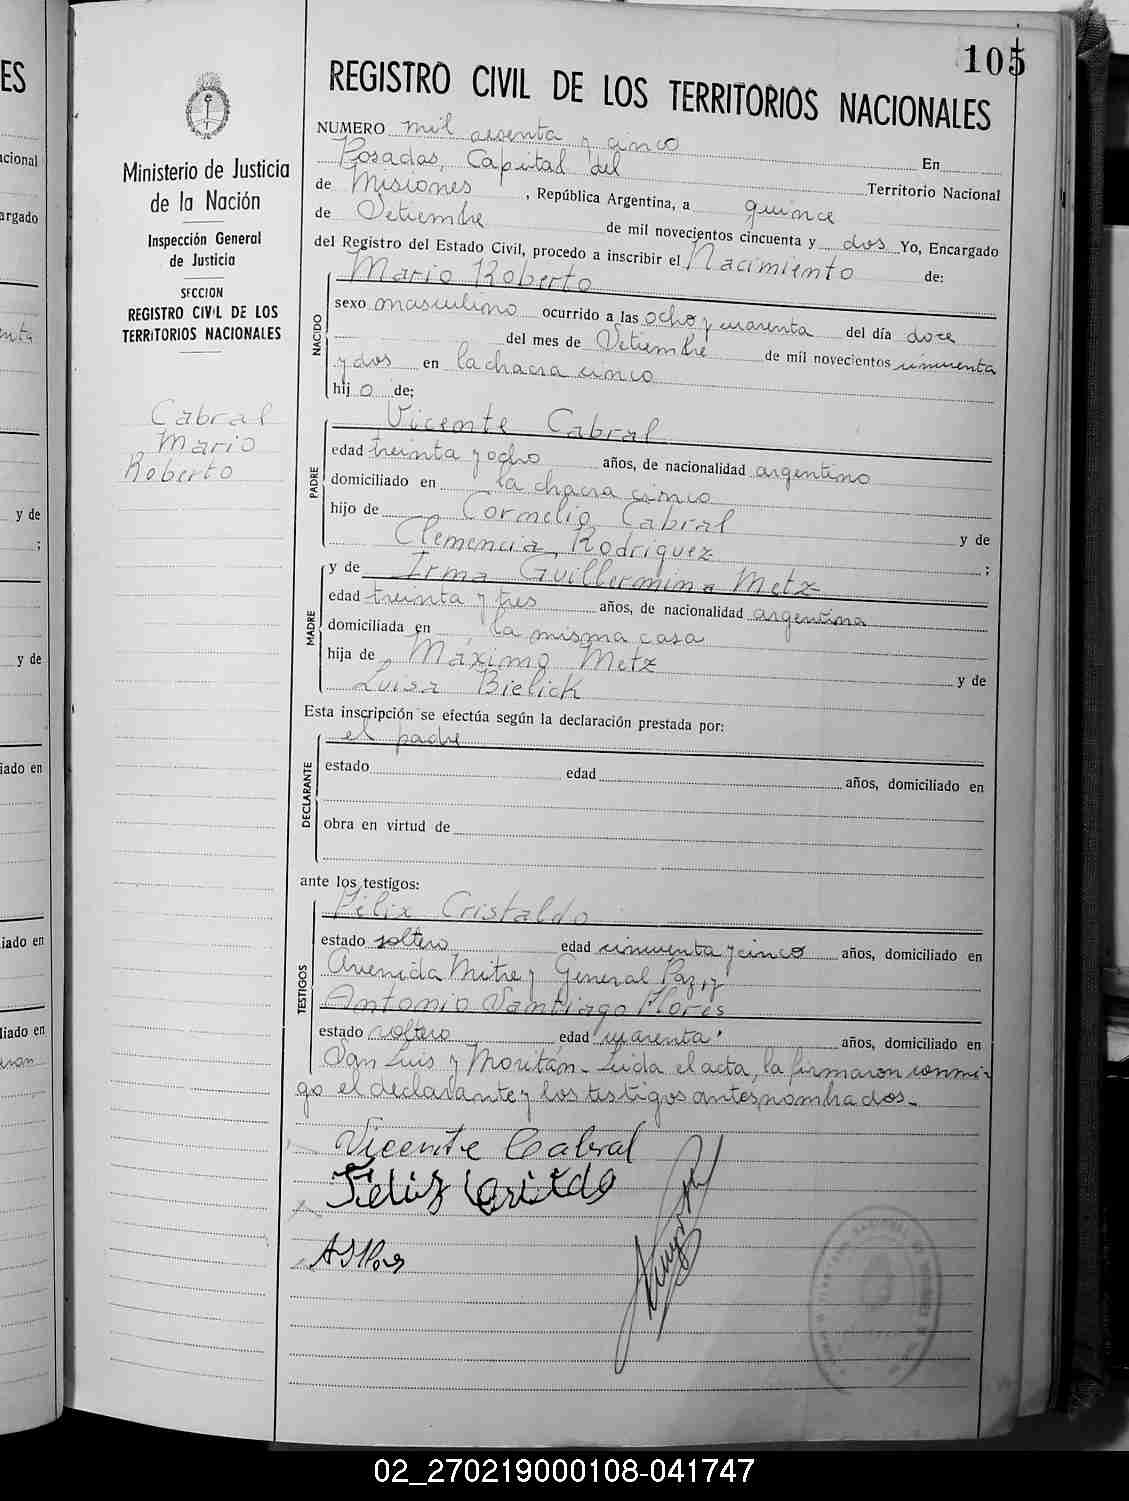 105
REGISTRO CIVIL DE LOS TERRITORIOS NACIONALES
Ministerio de Justicia
de la Nación
Inspección General
de Justicia
SECCION
REGISTRO CIVIL DE LOS
TERRITORIOS NACIONALES
Cabral
Mario
Roberto
NUMERO mil sesenta y cinco En
Posadas, Capital del Territorio Nacional
de Misiones, República Argentina, a quince
de Setiembre de mil novecientos cincuenta y dos Yo, Encargado
del Registro del Estado Civil, procedo a inscribir el Nacimiento de:
Mario Roberto
NACIDO
sexo masculino ocurrido a las ocho y cuarenta del día doce
del mes de Setiembre de mil novecientos cincuenta
y dos en la chacra cinco
hijo de;
Vicente Cabral
PADRE
edad treinta y ocho años, de nacionalidad argentino
domiciliado en la chacra cinco
hijo de Cornelio Cabral y de
Clemencia Rodriguez ;
y de Irma Guillermina Metz
MADRE
edad treinta y tres años, de nacionalidad argentina
domiciliada en la misma casa
hija de Máximo Metz y de
Luisa Bielick
Esta inscripción se efectúa según la declaración prestada por:
el padre
DECLARANTE
estado edad años, domiciliado en
obra en virtud de
ante los testigos:
Félix Cristaldo
TESTIGOS
estado soltero edad cincuenta y cinco años, domiciliado en
Avenida Mitre y General Paz, y
Antonio Santiago Flores
estado soltero edad cuarenta años, domiciliado en
San Luis y Moritán. Leida el acta, la firmaron conmi-
go el declarante y los testigos antes nombrados.
Vicente Cabral
ES
acional
argado
y de
;
y de
iado en
iado en
liado en
02_270219000108-041747